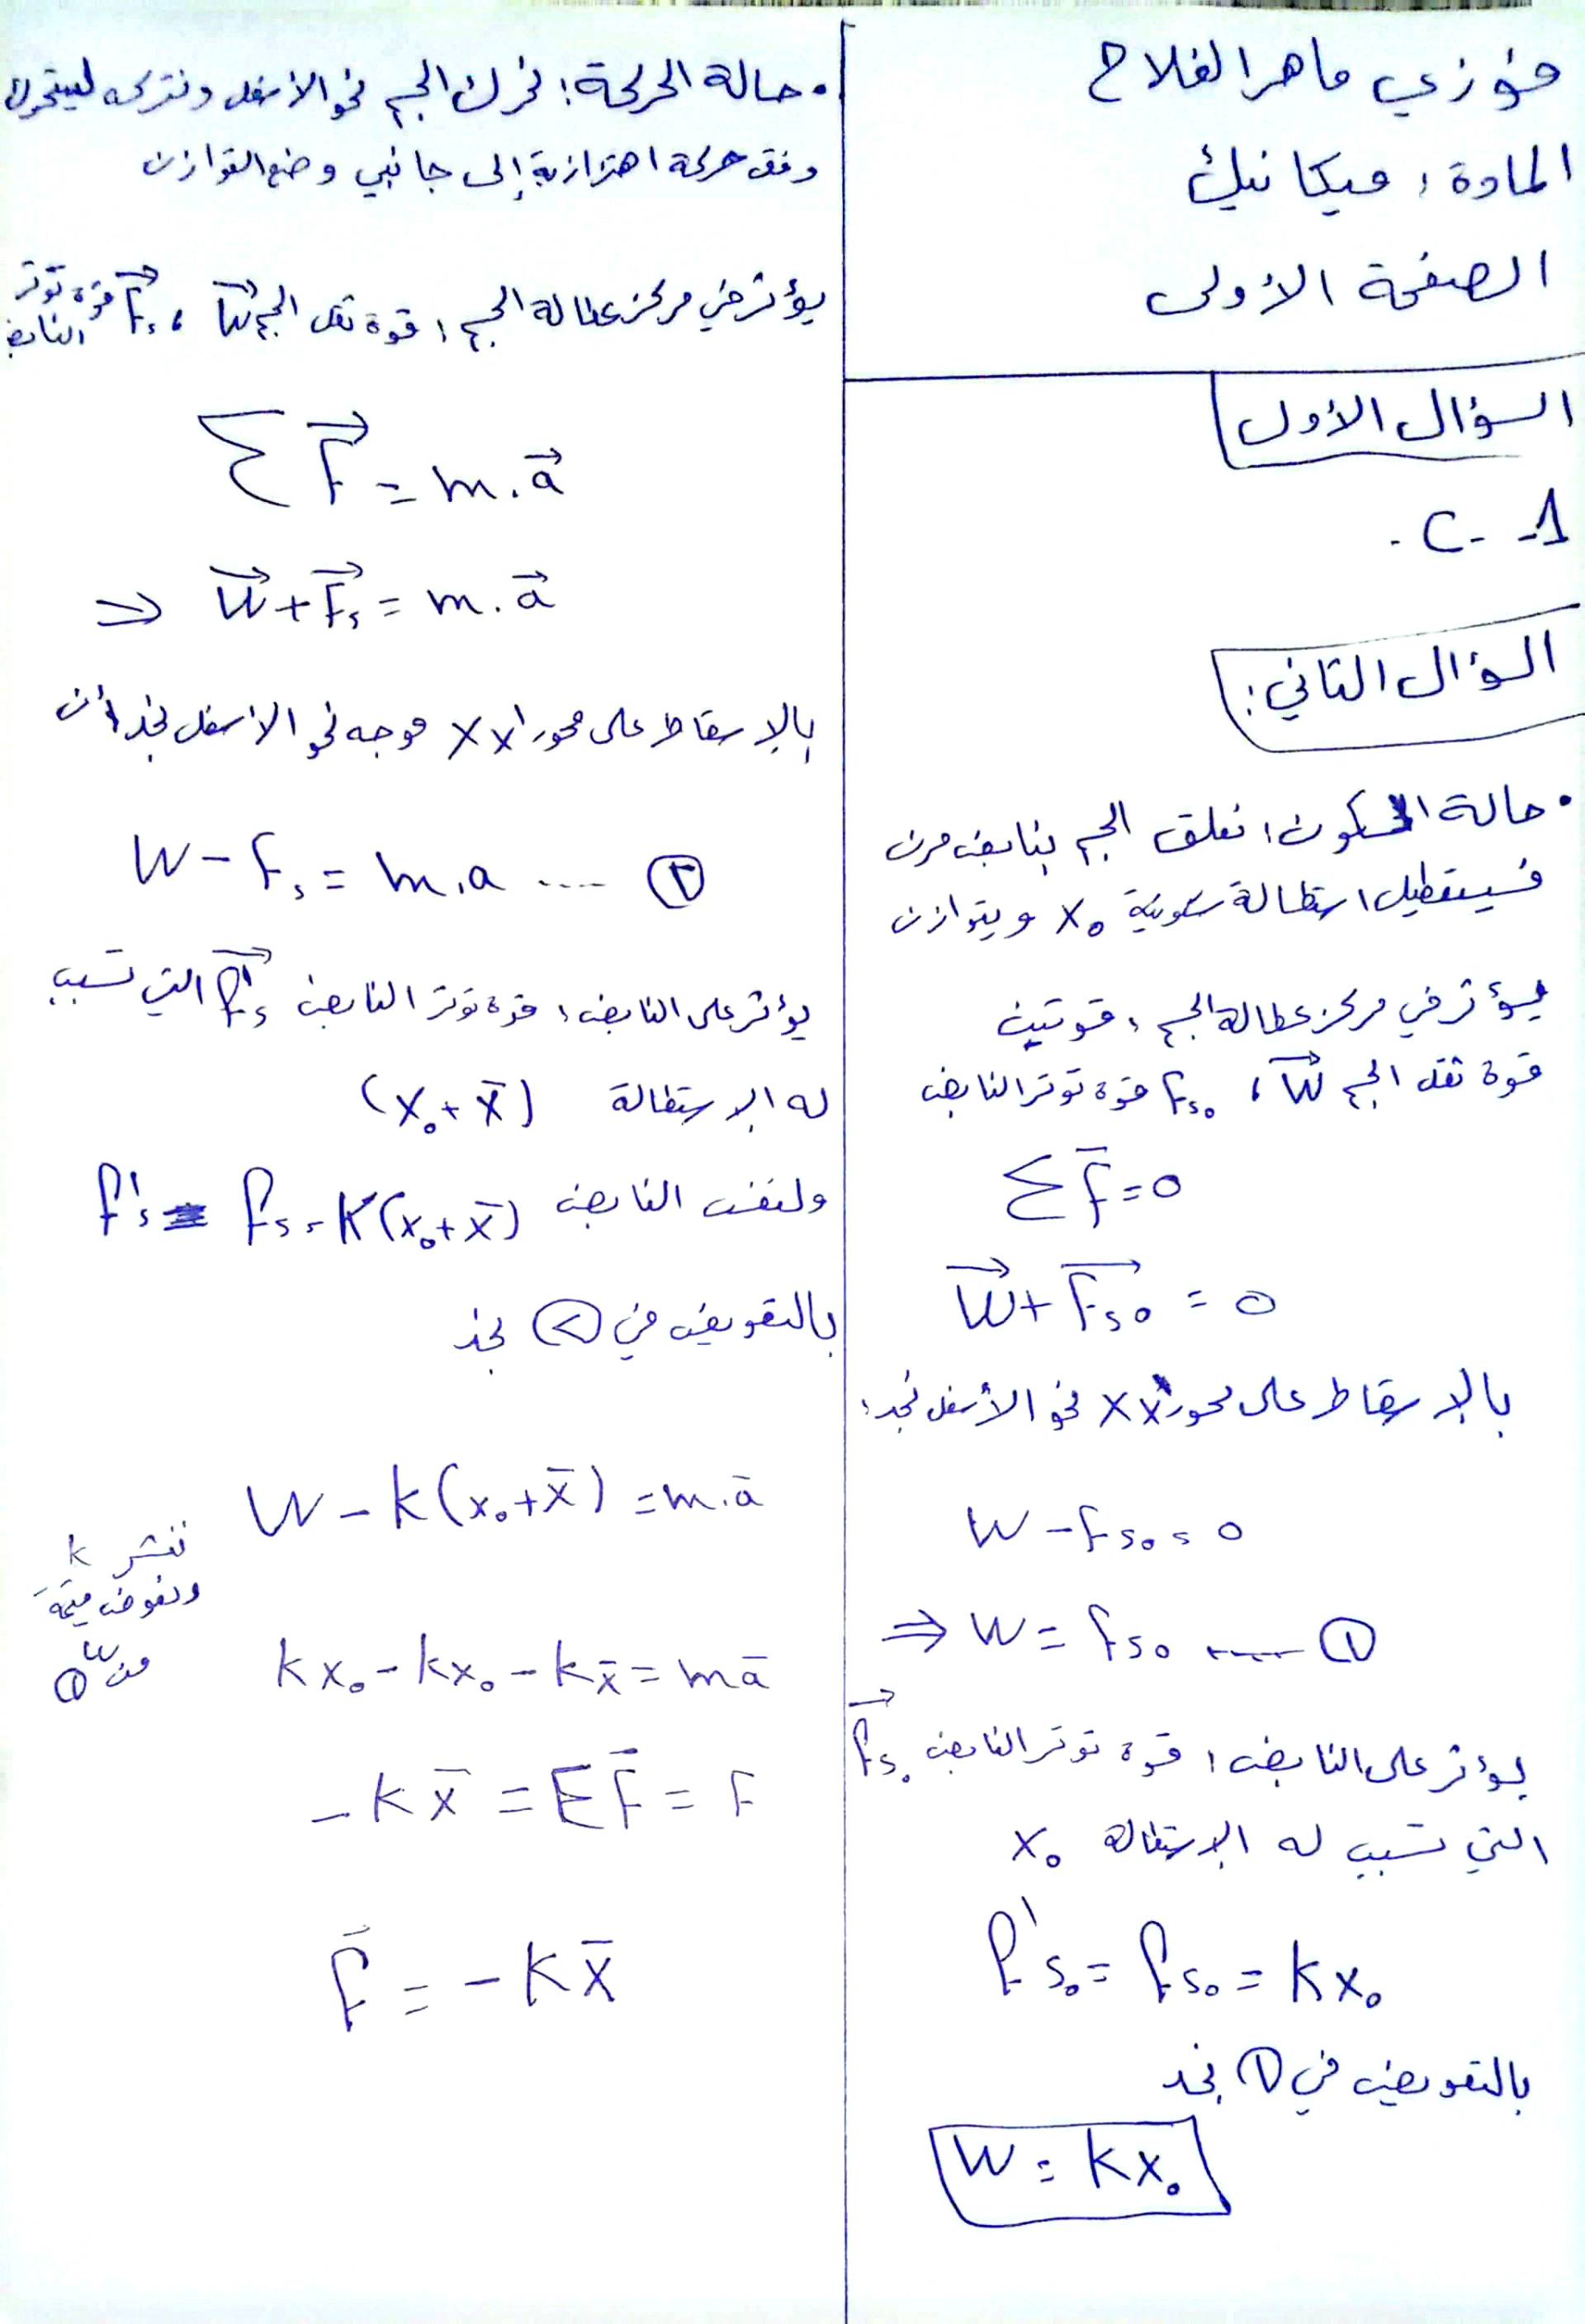 فوزي ماهر الفلاح
المادة: ميكانيك
الصفحة الأولى
السؤال الأول
1- C -
السؤال الثاني:
• حالة السكون: نعلق الجسم بنابض مرن
فسيستطيل استطالة سكونية x₀ ويتوازن
يؤثر في مركز عطالة الجسم: قوتين
قوة ثقل الجسم W⃗ ، Fs₀ قوة توتر النابض
ΣF̄ = 0
W⃗ + F⃗s₀ = 0
بالإسقاط على محور x'x نحو الأسفل نجد:
W - Fs₀ = 0
⇒ W = Fs₀ ..... ①
يؤثر على النابض: قوة توتر النابض F⃗s₀
التي تسبب له الاستطالة x₀
F's₀ = Fs₀ = kx₀
بالتعويض في ① نجد
W = kx₀
• حالة الحركة: نحرك الجسم نحو الأسفل ونتركه ليتحرك
وفق حركة اهتزازية إلى جانبي وضع التوازن
يؤثر في مركز عطالة الجسم: قوة ثقل الجسم W⃗ ، F⃗s قوة توتر النابض
ΣF⃗ = m.a⃗
⇒ W⃗ + F⃗s = m.a⃗
بالإسقاط على محور x'x موجه نحو الأسفل نجد أن
W - Fs = m.a .... ②
يؤثر على النابض: قوة توتر النابض F⃗'s التي تسبب
له الاستطالة (x₀ + x̄)
ولنفس النابض F's = Fs = K(x₀ + x̄)
بالتعويض في ② نجد
W - k(x₀ + x̄) = m.ā
ننشر k
ونعوض قيمة
W من ①
kx₀ - kx₀ - kx̄ = mā
-kx̄ = ΣF̄ = F
F̄ = -kx̄